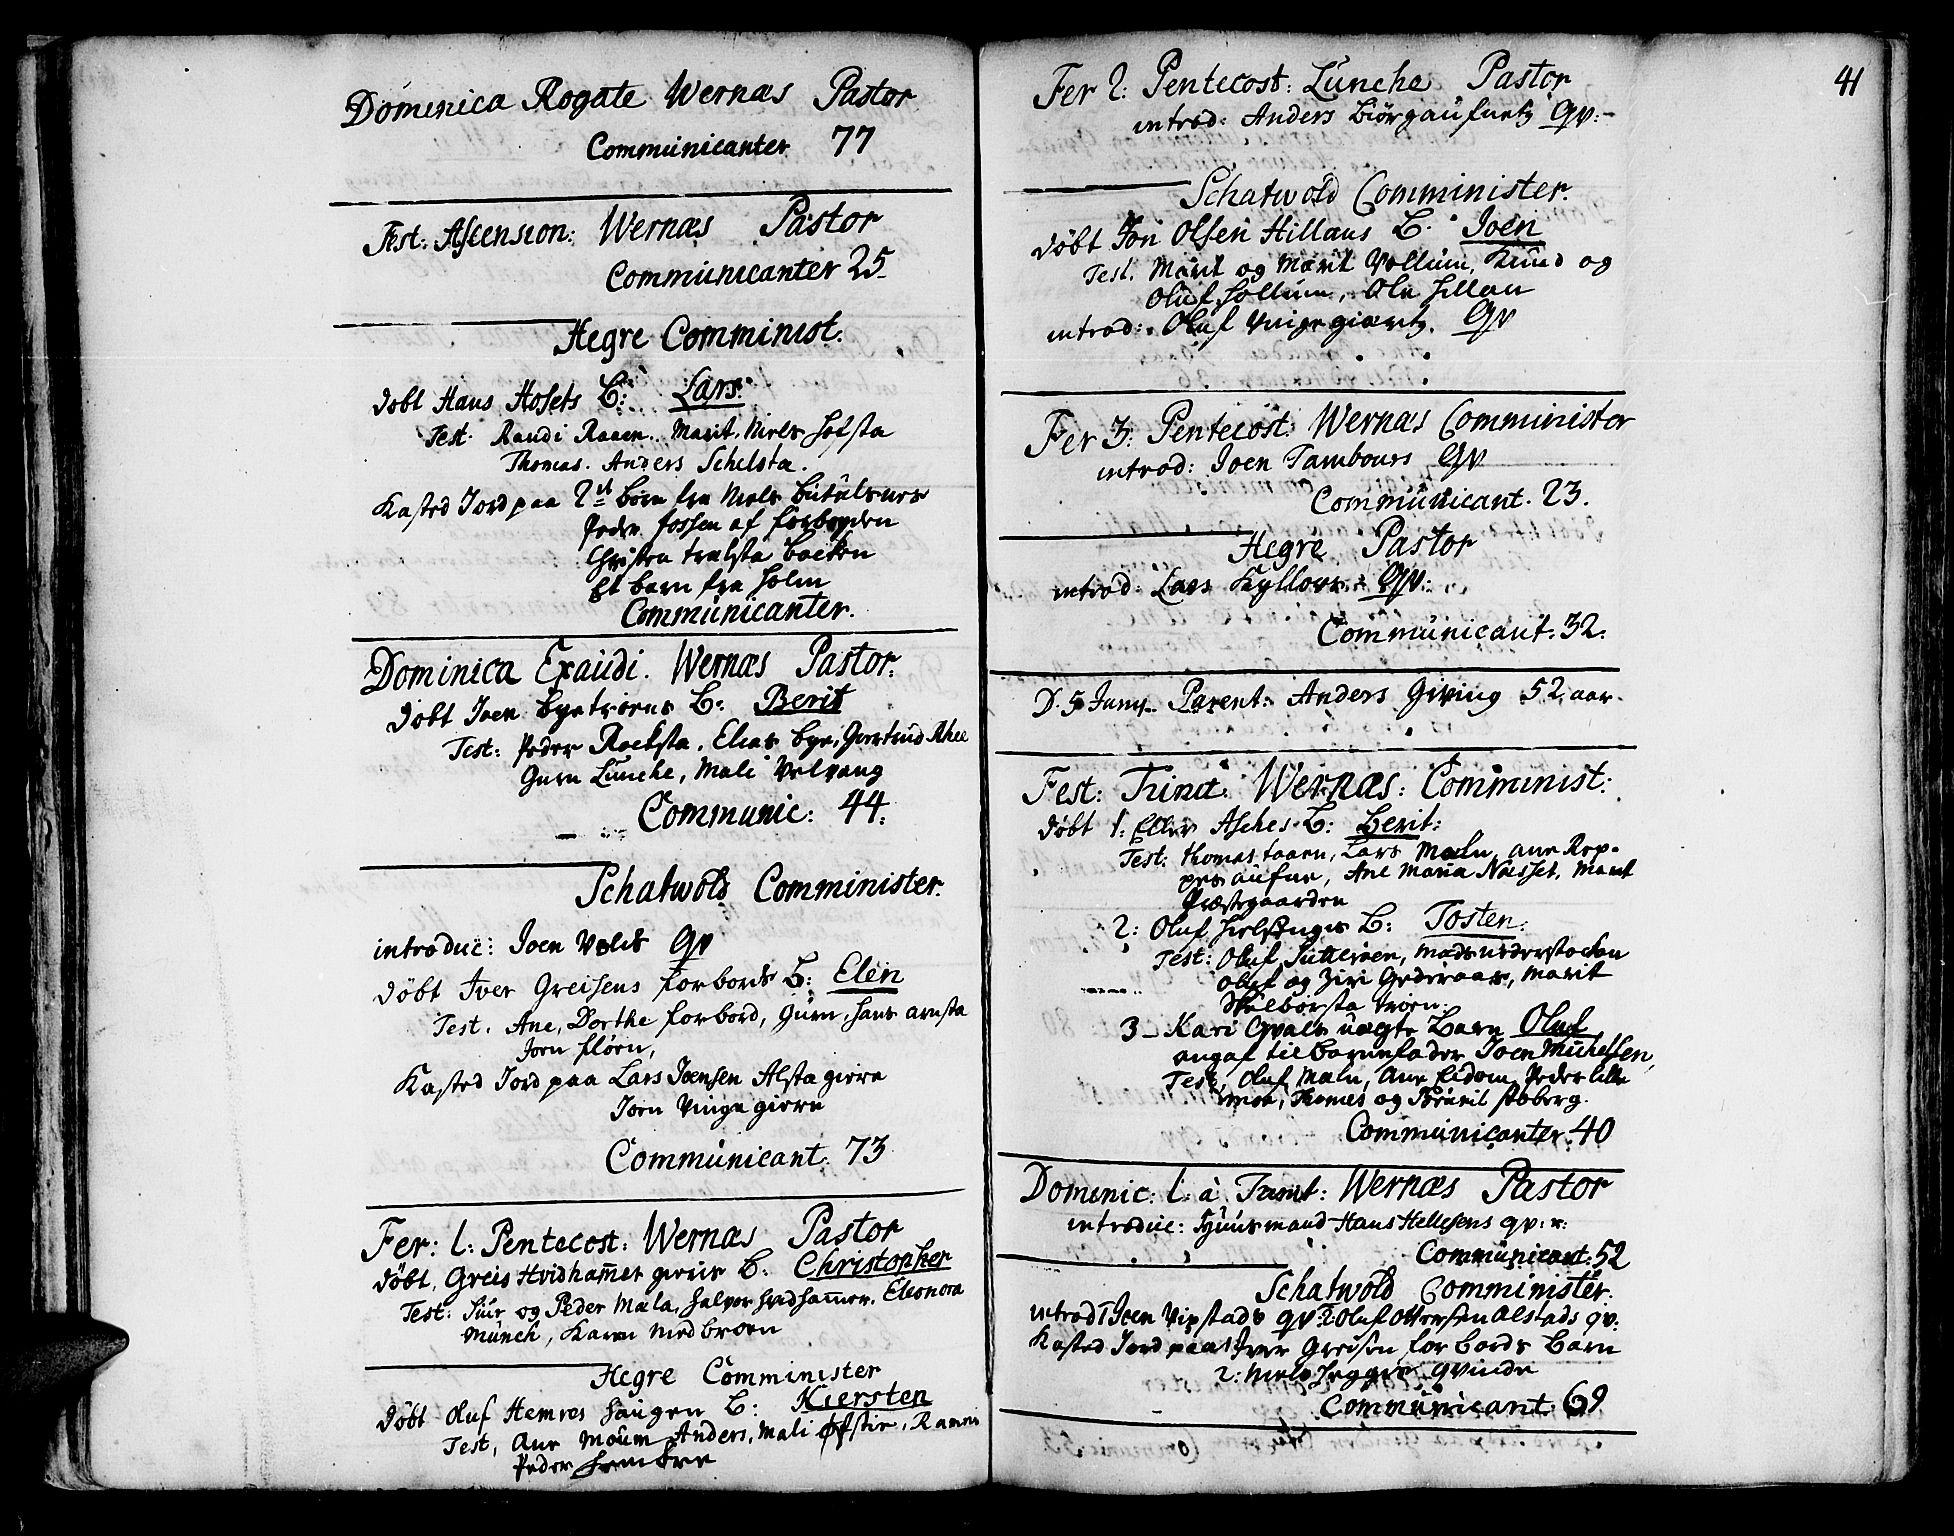 Dominica Rogate Wernæs Pastor
Communicanter 77
Fest: Ascension: Wernæs Pastor
Communicanter 25
Hegre Comminist.
døbt Hans Hosets B: Lars
Test. Randi Raaen. Marit. Niels Hofsta
Thomas. Anders Schelsta.
Kasted Jord paa 2de børn fra
Peder fossen af forbogden
Et barn fra Holm
Communicanter.
Dominica Exaudi. Wernæs Pastor.
døbt Joen byetrøens B: Berit
Test: Peder Rocksta. Elias bye, Giertrud Rhee
Guru Lünche, Mali Velvang
Communic: 44.
Schatwold Comminister.
introduc: Joen Volds Qv
døbt Iver Greisens forbords B: Elen
Test. Ane, Dorthe forbord, Guru, Hans arnsta
Joen floren,
Kasted Jord paa Lars Joensen Alsta giere
Joen Vinge giere
Communicant. 73
Fer: 1: Pentecost: Wernæs Pastor
døbt, Greis Hvidham̄er B: Christopher
Test: Siur og Peder Mæla, Halvor Hvidham̄er. Eleonora
Münch, Karen Medbroen
Hegre Comminister
døbt Oluf Hemres haugen B: Kiersten
Test, Ane Moum Anders, Mali
Peder Hembre
41
Fer 2: Pentecost: Lünche Pastor
introd: Anders Biörgaufuets Qv:
Schatwold Comminister.
døbt Jon Olsen Hillans B. Joen
Test. Marit og Marit Vollum, Knud og
Oluf Hollum, Ole Hillan
introd: Oluf Vinge giærtz. Qv
Fer 3: Pentecost. Wernæs Comminister
introd: Joen Tambours Qv
Communicant. 23.
Hegre Pastor
introd: Lars Kyllovs Qv:
Communicant. 32.
D. 5 Juny Parent: Anders Giving 52 aar.
Fest: Trinit: Wernæs: Comminist:
døbt 1: Eller Asches B: Berit:
Test: Thomas faaren, Lars Mæln, ane Rep-
pes aufne, Ane Maria Næsset, Marit
Præstegaarden
2: Oluf B: Tosten:
Test: Oluf Sutterøen, Mads
Oluf og Ziri Gederaas, Marit
Skelborsta trøen.
3 Kari Qvals uægte Barn Oluf
angaf til barnefader Joen Michelsen,
Test, Oluf Mæln, Ane Eidom, Peder lille
moe, Thomes og
Communicanter. 40
Dominic: 1: à Trinit: Wernæs Pastor
introduc: Huusmand Hans Hellesens qv:
Communicant: 52
Schatwold Comminister.
introd 1 Joen Vipstads qv: 2 Oluf Ottersen Alstads qv:
Kasted Jord paa 1 Iver Greisen forbords Barn
2: Niels qvinde
Communicant 69